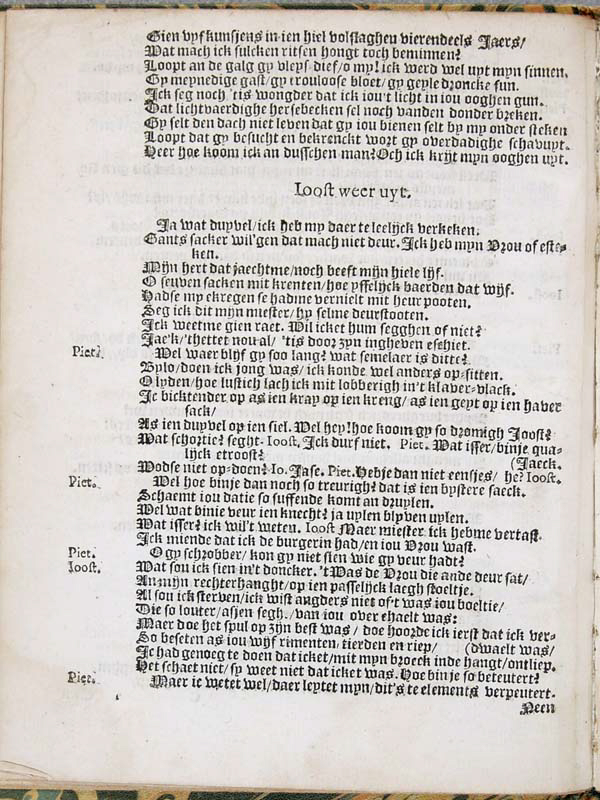 Gien vyfkunsjens in ien hiel volslaghen vierendeels Jaers/
Wat mach ick sulcken ritsen hongt toch beminnen?
Loopt an de galg gy vleys-dief/o my! ick werd wel uyt myn sinnen.
Gy meynedige gast/gy trouloose bloet/gy geyle droncke sun.
Ick seg noch 'tis wongder dat ick iou't licht in iou ooghen gun.
Dat lichtvaerdighe hersebecken sel noch vanden donder breken.
Gy selt den dach niet leven dat gy iou bienen selt by my onder steken
Loopt dat gy besucht en bekrenckt wort gy overdadighe schavuyt.
Heer hoe koom ick an dusschen man? Och ick krijt myn ooghen uyt.
Ioost weer uyt.
Ja wat duyvel/ick heb my daer te leelijck verkeken.
Gants sacker wil'gen dat mach niet deur. Ick heb myn Vrou of este-
ken.
Mijn hert dat jaechtme/noch beeft mijn hiele lijf.
O seuven sacken mit krenten/hoe ysselijck baerden dat wijf.
Hadse my ekregen se hadme vernielt mit heur pooten.
Seg ick dit mijn miester/hy selme deurstooten.
Ick weetme gien raet. Wil icket hum segghen of niet?
Jae'k/'thettet nou al/ 'tis door zyn ingheven eschiet.
Piet. Wel waer blijf gy soo lang? wat semelaer is ditte?
Bylo/doen ick jong was/ick konde wel anders op-sitten.
O lyden/hoe lustich lach ick mit lobberigh in't klaver-vlack.
Ic bicktender op as ien kray op ien kreng/ as ien geyt op ien haver
sack/
As ien duyvel op ien siel. Wel hey! hoe koom gy so dromigh Joost?
Wat schortie? seght. Ioost. Ick durf niet. Piet. Wat isser/binje qua-
lijck etroost?
(Jaeck.
Wodse niet op-doen? Io. Jase. Piet. Hebje dan niet eensjes/ he? Ioost.
Piet. Wel hoe binje dan noch so treurigh? dat is ien bystere saeck.
Schaemt iou datie so suffende komt an druylen.
Wel wat binie veur ien knecht? ja uylen blyven uylen.
Wat isser? ick wil't weten. Ioost Maer miester ick hebme vertast.
Ick miende dat ick de burgerin had/en iou Vrou wast.
Piet. O gy schrobber/ kon gy niet sien wie gy veur hadt?
Ioost. Wat sou ick sien in't doncker. 't Was de Vrou die ande deur sat/
An mijn rechterhanght/op ien passelijck laegh stoeltje.
Al sou ick sterven/ick wist angders niet of-t was iou boeltie/
Die so louter/asjen segh./van iou over ehaelt was:
Maer doe het spul op zijn best was/ doe hoorde ick ierst dat ick ver-
So beseten as iou wijf rimenten/tierden en riep/ (dwaelt was/
Ic had genoeg te doen dat icket/mit myn broeck inde hangt/ontliep.
Het schaet niet/ sy weet niet dat icket was. Hoe bin je so beteutert?
Piet. Maer ic wetet wel/daer leytet myn/dit's te elements verpeutert.
Neen